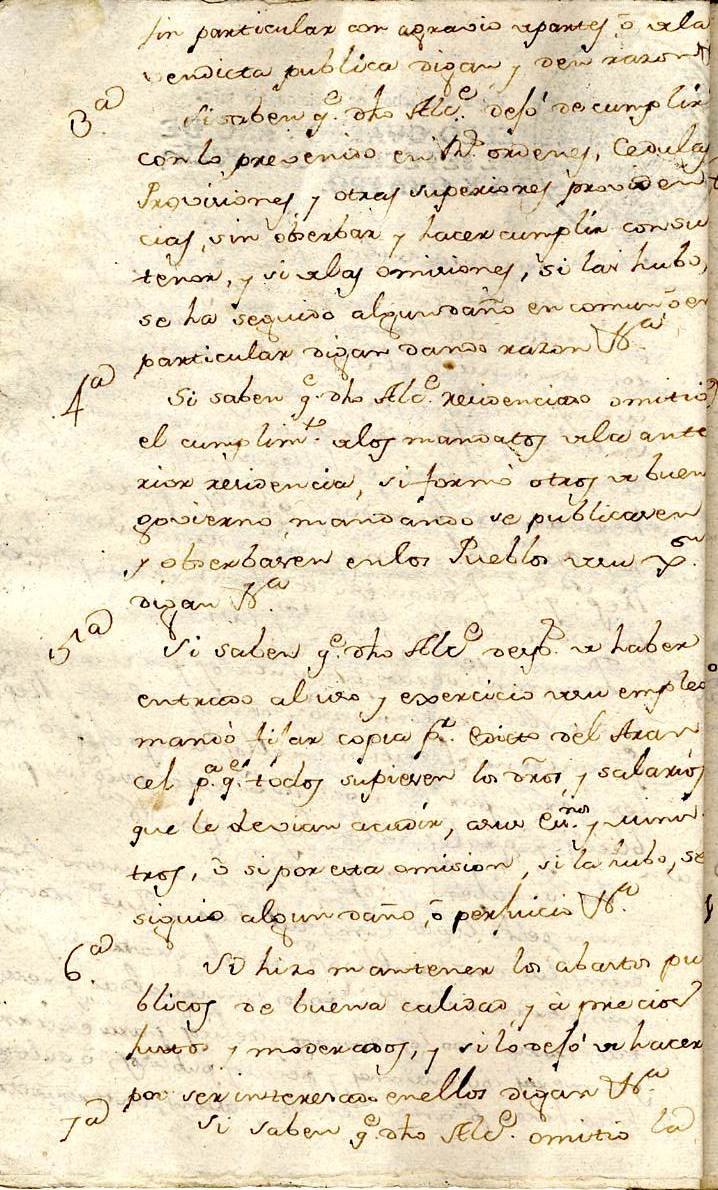 sin particular con agravio de partes, ô de la
vendicta publica digan y den razon
3ª Si saben q.e dho Alc.e dejó de cumplir
con lo prevenido en R.s ordenes, Cedulas,
Provisiones, y otras superiores providen
cias, sin obserbar y hacer cumplir con su
tenor, y si de las omisiones, si las hubo,
se ha seguido algun daño en comun, ô en
particular digan dando razon &ª
4ª Si saben q.e dho Alc.e residenciado omitió
el cumplim.to de los mandatos de la ante
rior residencia, si formó otros de buen
govierno, mandando se publicasen
y obserbasen en los Pueblos de su
digan &ª
5ª Si saben q.e dho Alc.e desp.s de haber
entrado al uso y exercicio de su empleo
mandó fijar copia p.r Edicto del Aran
cel p.a q.e todos supiesen los dros y salarios
que le devian acudir, a sus Eu.nos y minis
tros, ô si por esta omision, si la hubo, se
siguio algun daño, ô perjuicio &ª
6ª Si hizo mantener los abastos pu
blicos de buena calidad y à precios
justos y moderados, y si lo dejó de hacer
por ser interesado en ellos digan &ª
7ª Si saben q.e dho Alc.e omitio la